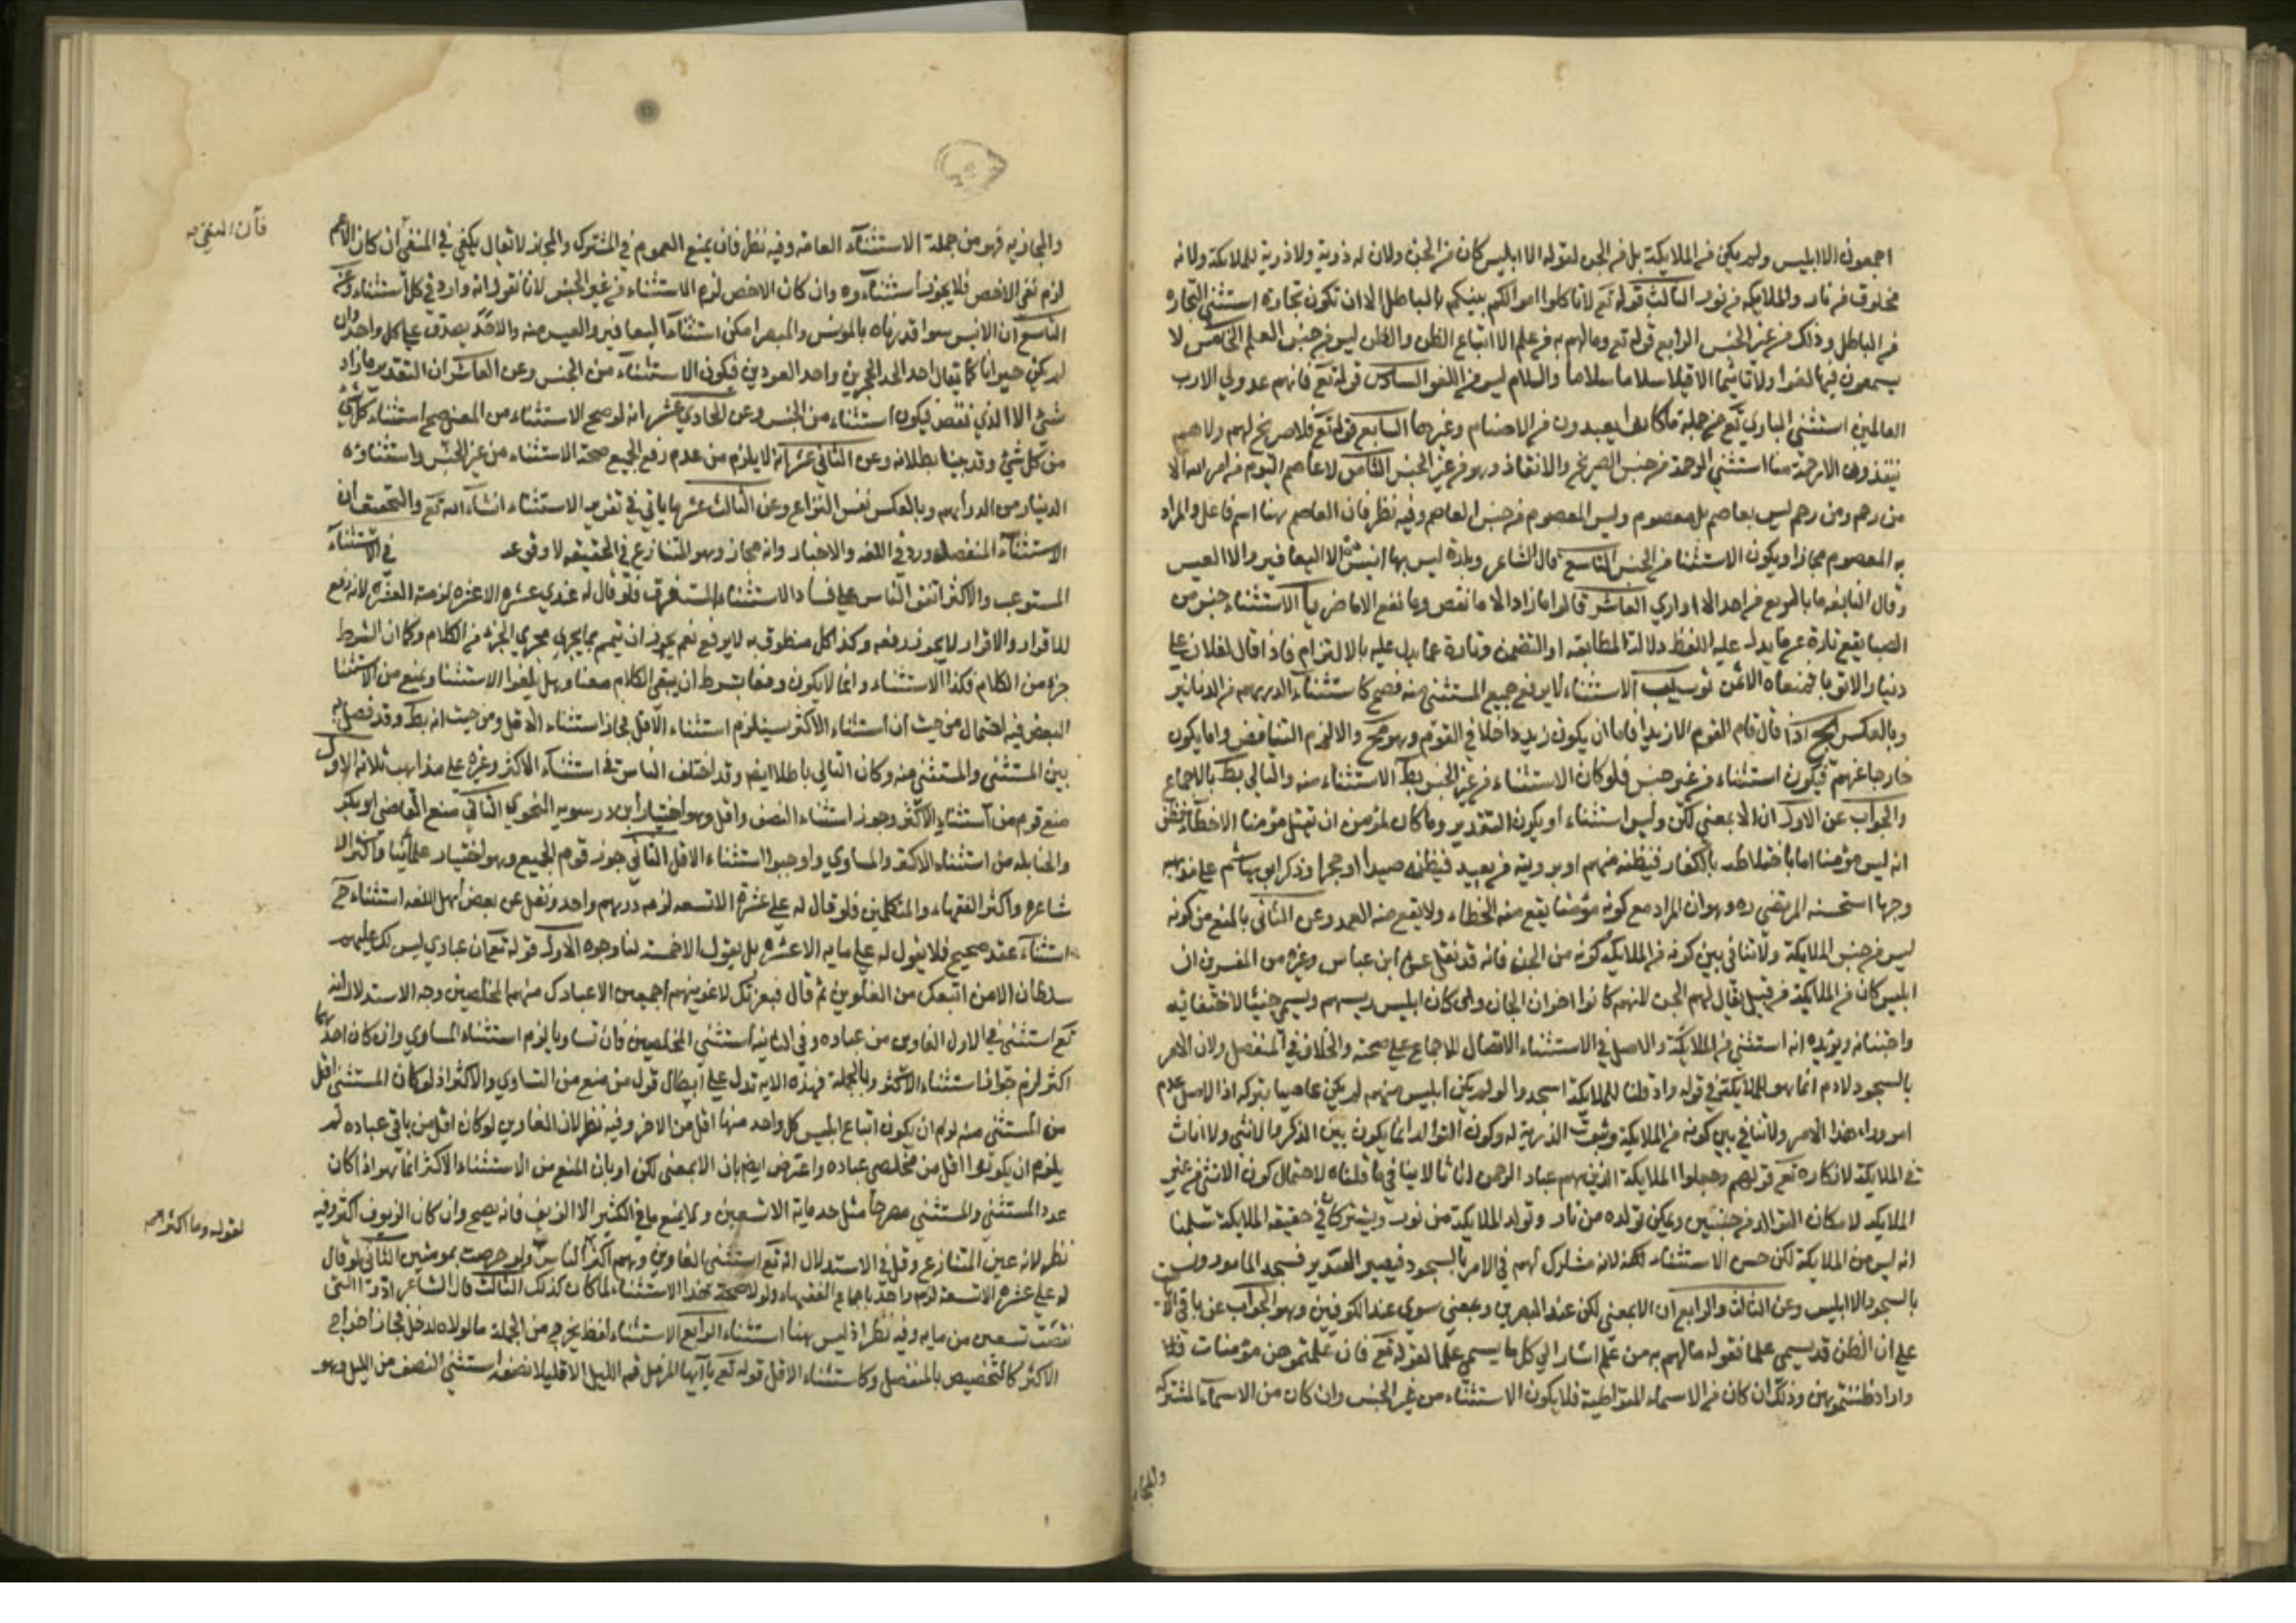 اجمعون الا ابليس ولم يكن من الملايكة بل من الجن لقوله الا ابليس كان من الجن ولان له ذرية ولا ذرية للملايكة ولانه
مخلوق من نار والملايكة من نور الثالث قوله تع لا تاكلوا اموالكم بينكم بالباطل الا ان تكون تجارة استثنى التجارة
من الباطل وذلك من غير الجنس الرابع قوله تع وما لهم به من علم الا اتباع الظن والظن ليس من جنس العلم الخامس لا
يسمعون فيها لغوا ولا تاثيما الا قيلا سلاما سلاما والسلام ليس من اللغو السادس قوله تع فانهم عدو لي الا رب
العالمين استثنى الباري تع من جملة ما كانوا يعبدون من الاصنام وغيرها السابع قوله تع فلا صريخ لهم ولا هم
ينقذون الا رحمة منا استثنى الرحمة من جنس الصريخ والانقاذ وهو من غير الجنس الثامن لا عاصم اليوم من امر الله الا
من رحم ومن رحم ليس بعاصم بل معصوم وليس المعصوم من جنس العاصم وفيه نظر فان العاصم هنا اسم فاعل والمراد
به المعصوم مجازا ويكون الاستثنا من الجنس التاسع قال الشاعر وبلدة ليس بها انيس الا اليعافير والا العيس
وقال النابغه ما بالربع من احد الا اواري العاشر قالوا ما زاد الا ما نقص وما نفع الا ما ضر يا الاستثناء جنس من
يقع تارة عما يدل عليه اللفظ دلالة المطابقه او التضمن وتارة عما يدل عليه بالالتزام فاذا قال لفلان علي
دينار الا ثوبا فمعناه الا ثمن ثوب يب الاستثناء لا يرفع جميع المستثنى منه فصح كاستثناء الدرهم من الدنانير
وبالعكس يج اذا قال قام القوم الا زيدا فاما ان يكون زيد داخلا في القوم وهو مح والا لزم التناقض واما يكون
خارجا عنهم فيكون استثناء من غير جنس فلو كان الاستثناء من غير الجنس بط الاستثناء منه والتالي بط بالاجماع
والجواب عن الاول ان الا بمعنى لكن وليس استثناء او يكون التقدير وما كان لمؤمن ان يقتل مؤمنا الا خطأ
انه ليس مؤمنا اما باختلاطه بالكفار فيظنه منهم او برويته من بعيد فيظنه صيدا او حجرا وذكر ابو هاشم على مذهبه
وجها استحسنه المرتضى ره وهو ان المراد مع كونه مؤمنا يقع منه الخطاء ولا يقع منه العمد وعن الثاني بالمنع من كونه
ليس من جنس الملايكة ولا تنافي بين كونه من الملايكة كونه من الجن فانه قد نقل عن ابن عباس وغيره من المفسرين ان
ابليس كان من الملايكة من قبيل يقال لهم الجن لانهم كانوا خزان الجنان وكان ابليس رييسهم وسمي جنيا لاختفائه
واجتنانه ويؤيده انه استثنى من الملايكة والاصل في الاستثناء الاتصال للاجماع على صحته والخلاف في المنفصل ولان الامر
بالسجود لادم انما هو للملايكة في قوله واذ قلنا للملايكة اسجدوا ولو لم يكن ابليس منهم لم يكن عاصيا بتركه اذ الاصل عدم
امر وراء هذا الامر ولا تنافي بين كونه من الملايكة وثبوت الذرية له وكون التوالد انما يكون بين الذكر والانثى ولا اناث
في الملايكة لانكاره تع قولهم وجعلوا الملايكة الذين هم عباد الرحمن اناثا لا ينافي ما قلناه لاحتمال كون الانثى من غير
الملايكه لامكان التوالد من جنسين ويمكن تولده من نار وتولد الملايكة من نور ويشتركان في حقيقة الملايكة سلمنا
انه ليس من الملايكة لكن حسن الاستثناء لكنه لانه مشارك لهم في الامر بالسجود فيصير التقدير فسجد المامورون
بالسجود الا ابليس وعن الثالث والرابع ان الا بمعنى لكن عند البصريين وبمعنى سوى عند الكوفيين وهو الجواب عن باقي
على ان الظن قد يسمى علما فقوله ما لهم به من علم اشار الى كل ما يسمى علما لقوله تع فان علمتموهن مؤمنات
واراد ظننتموهن وذلك ان كان من الاسماء المتواطية فلا يكون الاستثناء من غير الجنس وان كان من الاسماء المشتركة
والمجاز
والمجازية فهو من جملة الاستثناء العامة وفيه نظر فان يمنع العموم في المشترك والمجاز لا يقال يكفي في المنفي ان كان الاعم
لزم نفي الاخص فلا يجوز استثناؤه وان كان الاخص لزم الاستثناء من غير الجنس لانا نقول انه وارد في كل استثناء وعن
التاسع ان الانيس سوا قدرناه بالمونس والمبصر امكن استثناء اليعافير والعيس منه والاحد يصدق على كل واحد وان
لم يكن حيوانا كما يقال احد الحجرين واحد العودين فيكون الاستثناء من الجنس وعن العاشر ان التقدير ما زاد
شئ الا الذي نقص فيكون استثناء من الجنس وعن الحادي عشر انه لو صح الاستثناء من المعنى صح استثناء كل شئ
من كل شئ وقد بينا بطلانه وعن الثاني عشر انه لا يلزم من عدم رفع الجميع صحة الاستثناء من غير الجنس واستثناؤه
الدينار من الدراهم وبالعكس نفس النزاع وعن الثالث عشر ما ياتي في تقرير الاستثناء انشاء الله تع والتحقيق ان
الاستثناء المنفصل ورد في اللغه والاخبار وانه مجاز وهو المتنازع في الحقيقه لا وقوعه في الاستثناء
المستوعب والاكثر اتفق الناس على فساد الاستثناء المستغرق فلو قال له عندي عشره الا عشره لزمته العشره لانه رفع
للاقرار والاقرار لا يجوز رفعه وكذا كل منطوق به لا يرفع نعم يجوز ان يتمم بما يجري مجرى الجزء من الكلام وكما ان الشرط
جزء من الكلام فكذا الاستثناء وانما لا يكون رفعا بشرط ان يبقى للكلام معنا وهل يلغوا الاستثنا ويمنع من الاستثنا
البعض فيه احتمال من حيث ان استثناء الاكثر يستلزم استثناء الاقل فجاز استثناء الاقل ومن حيث انه بط وقد فصل به
بين المستثنى والمستثنى منه وكان التالي باطلا ايضا وقد اختلف الناس في استثناء الاكثر وغيره على مذاهب ثلاثه الاول
منع قوم من استثناء الاكثر وجوز استثناء النصف واقل وهو اختيار ابن درستويه النحوي الثاني منع القاضي ابو بكر
والحنابله من استثناء الاكثر والمساوي واوجبوا استثناء الاقل الثاني جوز قوم الجميع وهو اختيار علمائنا واكثر الا
شاعره واكثر الفقهاء والمتكلمين فلو قال له علي عشرة الا تسعه لزمه درهم واحد ونقل عن بعض اهل اللغه استثناء
استثناء عقد صحيح فلا يقول له علي مايه الا عشره بل يقول الا خمسة لنا وجوه الاول قوله تع ان عبادي ليس لك عليهم
سلطان الا من اتبعك من الغاوين ثم قال فبعزتك لاغوينهم اجمعين الا عبادك منهم المخلصين وجه الاستدلال انه
تع استثنى في الاول الغاوين من عباده وفي الثانية استثنى المخلصين فان تساويا لزم استثناء المساوي وان كان احدهما
اكثر لزم جواز استثناء الاكثر وبالجملة فهذه الايه تدل على ابطال قول من منع من التساوي والاكثر اذ لو كان المستثنى اقل
من المستثنى منه لزم ان يكون اتباع ابليس كل واحد منهما اقل من الاخر وفيه نظر لان الغاوين لو كان اقل من باقي عباده لم
يلزم ان يكونوا اقل من مخلصي عباده واعترض ايضا بان الا بمعنى لكن او بان المنع من الاستثناء الاكثر انما هو اذا كان
عدد المستثنى والمستثنى مصرحا مثل خذ ماية الا تسعين وكما يمنع ما في الكيس الا الزيوف فانه يصح وان كان الزيوف اكثر وفيه
نظر لانه عين المتنازع وقيل في الاستدلال انه تع استثنى الغاوين وهم اكثر الناس ولو حرصت بمومنين الثاني لو قال
له علي عشره الا تسعة لزم واحد باجماع الفقهاء ولولا صحة هذا الاستثناء لما كان كذلك الثالث قال الشاعر ادوا التي
نقصت تسعين من مايه وفيه نظر اذ ليس هنا استثناء الرابع الاستثناء لفظ يخرج من الجملة ما لولاه لدخل فجاز اخراج
الاكثر كالتخصيص بالمنفصل وكاستثناء الاقل قوله تع يا ايها المزمل قم الليل الا قليلا نصفه استثنى النصف من الليل وهو
لقوله وما اكثرهم